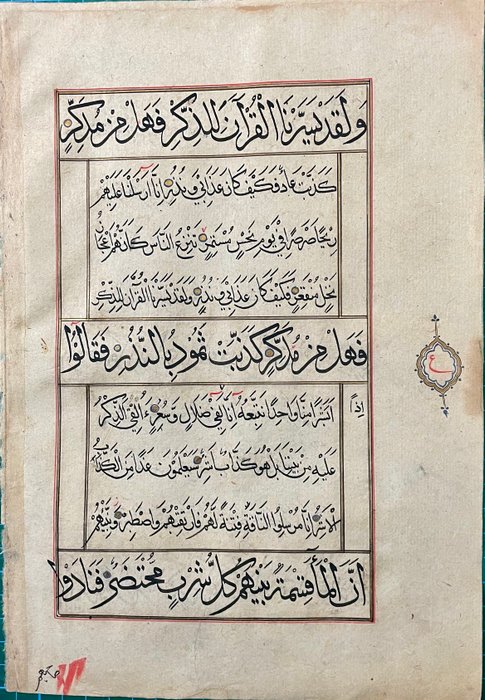 وَلَقَدْ يَسَّرْنَا الْقُرْآنَ لِلذِّكْرِ فَهَلْ مِنْ مُدَّكِرٍ
كَذَّبَتْ عَادٌ فَكَيْفَ كَانَ عَذَابِي وَنُذُرِ اِنَّا اَرْسَلْنَا عَلَيْهِمْ
رِيحًا صَرْصَرًا فِي يَوْمِ نَحْسٍ مُسْتَمِرٍّ تَنْزِعُ النَّاسَ كَاَنَّهُمْ اَعْجَازُ
نَخْلٍ مُنْقَعِرٍ فَكَيْفَ كَانَ عَذَابِي وَنُذُرِ وَلَقَدْ يَسَّرْنَا الْقُرْآنَ لِلذِّكْرِ
فَهَلْ مِنْ مُدَّكِرٍ كَذَّبَتْ ثَمُودُ بِالنُّذُرِ فَقَالُوا
ع
اِذًا
اَبَشَرًا مِنَّا وَاحِدًا نَتَّبِعُهُ اِنَّا لَفِي ضَلَالٍ وَسُعُرٍ ءَاُلْقِيَ الذِّكْرُ
عَلَيْهِ مِنْ بَيْنِنَا بَلْ هُوَ كَذَّابٌ اَشِرٌ سَيَعْلَمُونَ غَدًا مَنِ الْكَذَّابُ
الْاَشِرُ اِنَّا مُرْسِلُوا النَّاقَةِ فِتْنَةً لَهُمْ فَارْتَقِبْهُمْ وَاصْطَبِرْ وَنَبِّئْهُمْ
اَنَّ الْمَآءَ قِسْمَةٌ بَيْنَهُمْ كُلُّ شِرْبٍ مُحْتَضَرٌ فَنَادَوْا
صاحبهم